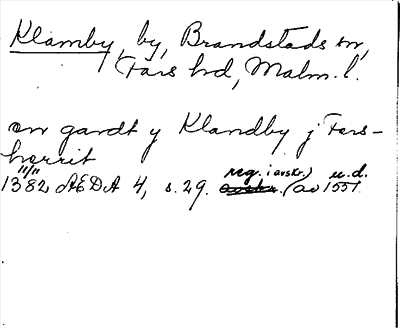 Klamby, by, Brandstads sn,
Färs hd, Malm. l.
en gardt y Klandby j Fers-
herrit
11/11
1382 ÆDA 4, s. 29. reg. (avskr.) u.d.
(av 1551